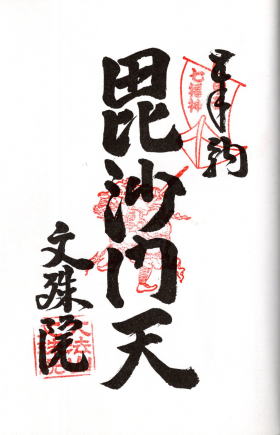 奉拝
七福神
毘沙门天
文殊院